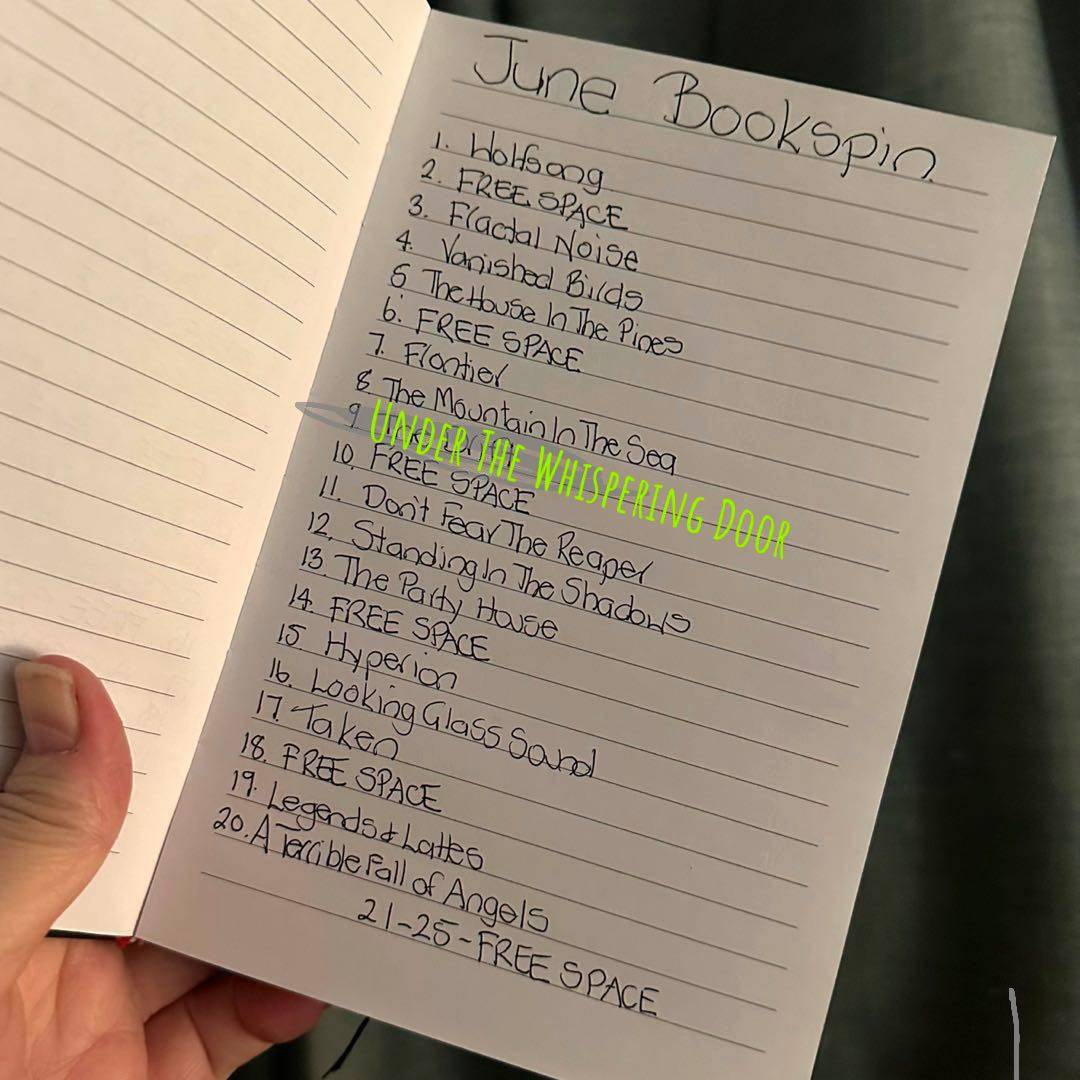 June Bookspin
1. Wolfsong
2. FREE SPACE
3. Fractal Noise
4. Vanished Birds
5 The House In The Pines
6. FREE SPACE
7. Frontier
8 The Mountain In The Sea
9 Under The Whispering Door
10. FREE SPACE
11. Don't Fear The Reaper
12. Standing In The Shadows
13. The Party House
14. FREE SPACE
15. Hyperion
16. Looking Glass Sound
17. Taken
18. FREE SPACE
19. Legends & Lattes
20. A Terrible Fall of Angels
21-25 - FREE SPACE